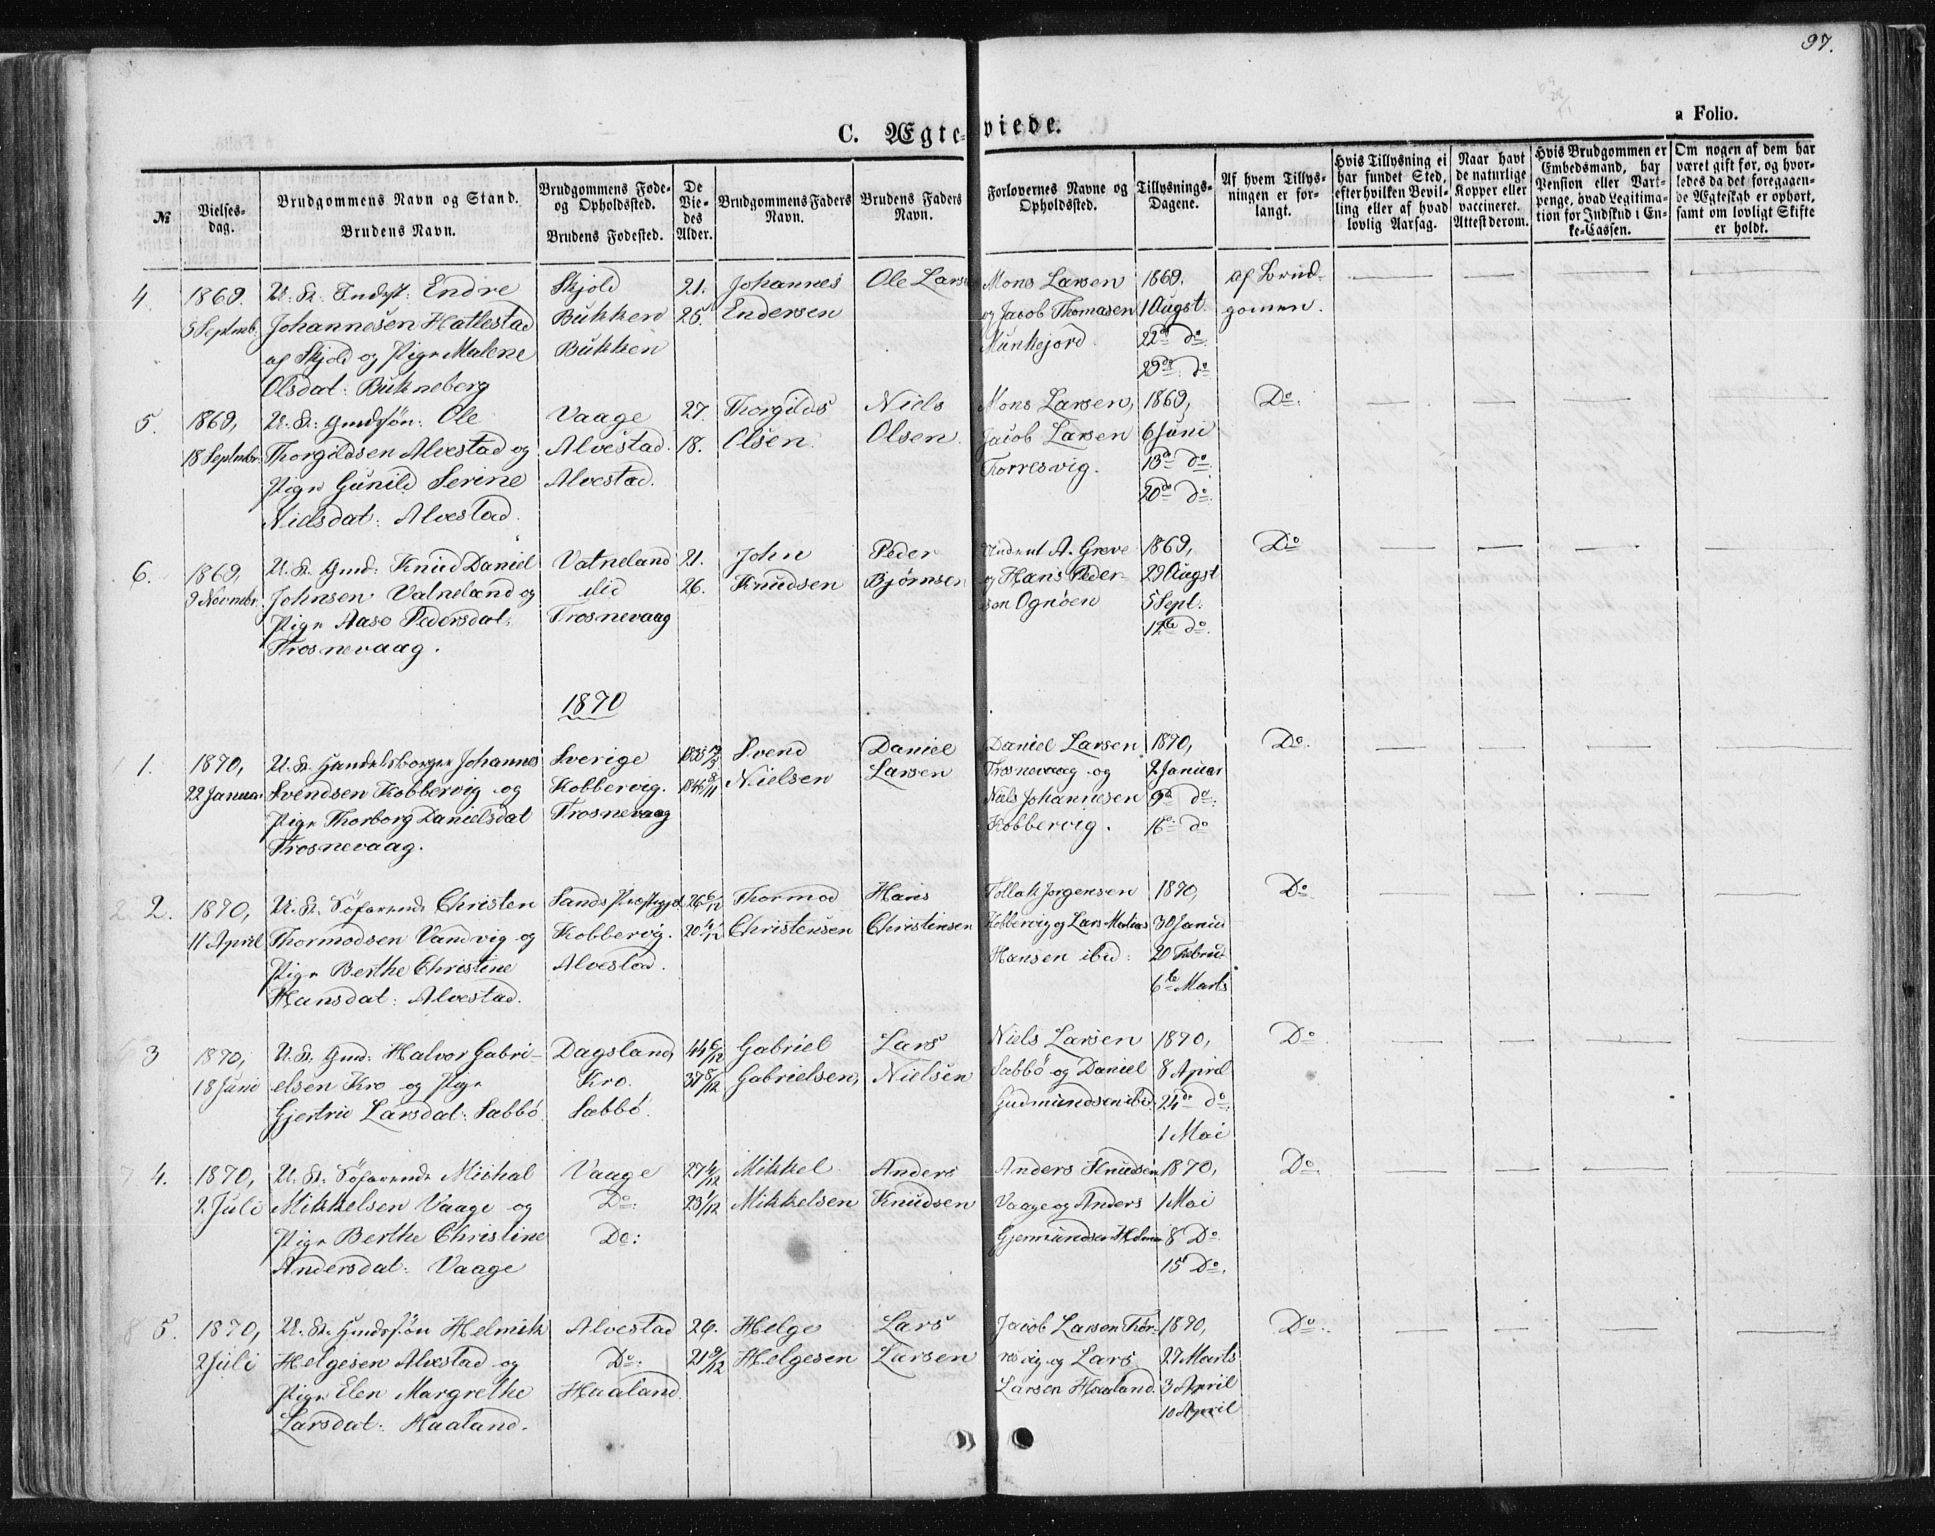 97.
a Folio.
C. Ægteviede.
№
Vielses-
dag.
Brudgommens Navn og Stand.
Brudens Navn.
Brudgommens Føde-
og Opholdssted.
Brudens Fødested.
De
Vie-
des
Alder.
Brudgommens Faders
Navn.
Brudens Faders
Navn.
Forlovernes Navne og
Opholdssted.
Tillysnings-
Dagene.
Af hvem Tillys-
ningen er for-
langt.
Hvis Tillysning ei
har fundet Sted,
efter hvilken Bevil-
ling eller af hvad
lovlig Aarsag.
Naar havt
de naturlige
Kopper eller
vaccineret.
Attest derom.
Hvis Brudgommen er
Embedsmand, har
Pension eller Vart-
penge, hvad Legitima-
tion for Indskud i En-
ke-Cassen.
Om nogen af dem har
været gift før, og hvor-
ledes da det foregaaen-
de Ægteskab er ophørt,
samt om lovligt Skifte
er holdt.
4.
1869.
5 Septmb.
U. K. Endre
Johannesen Hatlestad
af Skjold og Pige Malene
Olsdat: Bukneberg
Skjold
Bukken
Bukken
21.
25.
Johannes
Endersen
Ole Larse
Mons Larsen
og Jacob Thomasen
Munkejord.
1869.
1 Augst.
22de do.
29de do
af Brud-
gomen.
5.
1869,
18 Septmbr.
U. K: Gmdsøn: Ole
Thorgildsen Alvestad og
Pige Gunild Serine
Nielsdat: Alvestad.
Vaage
Alvestad.
Alvestad.
27.
18.
Thorgilds
Olsen.
Niels
Olsen.
Mons Larsen,
Jacob Larsen
Torresvig.
1869,
6 Juni
13de do
20de do.
Do.
6.
1869,
9 Novmbr.
U. K. Gmd: Knud Daniel
Johnsen Vatneland og
Pige Aase Pedersdat:
Trosnevaag.
Vatneland
ibid
Trosnevaag
21.
26.
John
Knudsen
Peder
Bjørnsen
A. Greve
og Hans Peder-
sen Ognøen
1869,
29 Augst
5 Sept:
12te do.
Do
1870
1.
1870,
22 Januar
U. K. Handelsborger Johannes
Svendsen Kobbervig og
Pige Thorborg Danielsdat
Trosnevaag.
Sverige
Kobbervig.
Trosnevaag
Svend
Nielsen
Daniel
Larsen
Daniel Larsen
Trosnevaag og
Niels Johannesen
Kobbervig.
1870,
2 Januar
9de do.
16 do
Do.
2.
1870,
11 April
U. K. Søfarende Christen
Thormodsen Vandvig og
Pige Berthe Christine
Hansdat: Alvestad.
Sands Præstegjeld
Kobbervig.
Alvestad.
26 6/12
20 4/12
Thormod
Christensen
Hans
Christensen
Tollak Jørgensen
Kobbervig og Lars Mathias
Hansen ibid:
1870,
30 Janua
20 Februa
6te Marts
Do
3
1870,
18 Juni
U. K. Gmd: Halvor Gabri-
elsen Kro og Pige
Gjertrid Larsdat: Sæbbø.
Dagsland,
Kro.
Sæbbø.
44 6/12
37 8/12
Gabriel
Gabrielsen,
Lars
Nielsen
Niels Larsen
Sæbbø og Daniel
Gudmundsen ibid.
1870,
8 April
24de do.
1 Mai
Do
4.
1870,
2 Juli
U. K. Søfarende Michal
Mikkelsen Vaage og
Pige Berthe Christine
Andersdat: Vaage
Vaage
Do:
Do:
27 4/12
23 1/12
Mikkel
Mikkelsen
Anders
Knudsen
Anders Knudsen
Vaage og Anders
Gjermundsen
1870,
1 Mai
8 Do.
15 Do.
Do.
5.
1870,
2 Juli
U. K. Gmdsøn Helmik
Helgesen Alvestad og
Pige Elen Margrethe
Larsdat: Haaland.
Alvestad
Do:
Haaland.
29.
21 9/12
Helge
Helgesen
Lars
Larsen
Jacob Larsen Tor-
resvig og Lars
Larsen Haaland.
1870,
27 Marts
3 April
10 April
Do.